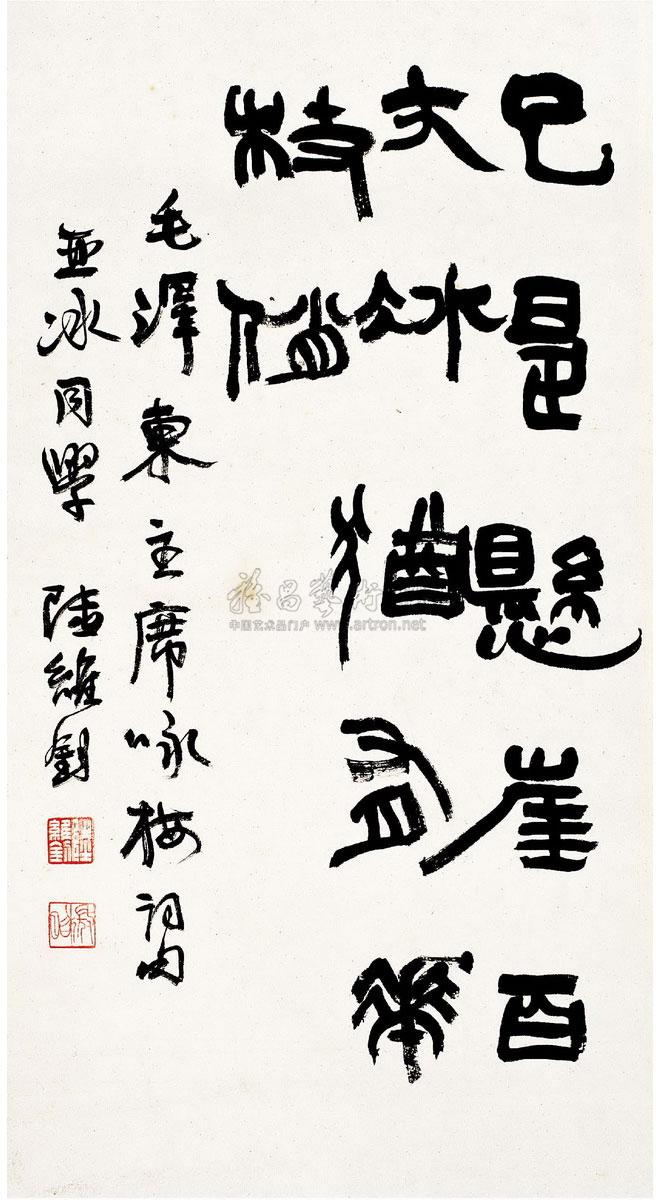 已是懸崖百
丈冰猶有花
枝俏
毛澤東主席咏梅詞句
亞冰同學 陸維釗
陸維釗
雅昌藝術
中国艺术品门户 www.artron.net